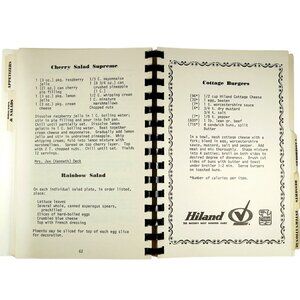 APPETIZERS
& SALADS
Cherry Salad Supreme
1 (3 oz.) pkg. raspberry
jello
1 (21 oz.) can cherry
pie filling
1 (3 oz.) pkg. lemon
jello
1 (3 oz.) pkg. cream
cheese
1/3 C. mayonnaise
1 (8 3/4 oz.) can
crushed pineapple
1/2 C. whipping cream
1 C. miniature
marshmallows
Chopped nuts
Dissolve raspberry jello in 1 C. boiling water;
stir in pie filling and pour into 9x9 pan.
Chill until partially set. Dissolve lemon jello
in 1 C. boiling water. Beat together
cream cheese and mayonnaise. Gradually add lemon
jello and stir in undrained pineapple. Whip
whipping cream and fold into lemon mixture with
marshmallows. Spread on top cherry layer. Top
with 2 T. chopped nuts. Chill until set. Yield:
12 servings.
Mrs. Joe (Kenneth) Deck
Rainbow Salad
On each individual salad plate, in order listed,
place:
Lettuce leaves
Several whole, canned asparagus spears,
Slices of hard-boiled eggs
Crumbled blue cheese
Top with French dressing
Pimento may be sliced for top of each egg slice
for decoration.
62
Cottage Burgers
1/2 cup Hiland Cottage Cheese
1 egg, beaten
1 t. worcestershire sauce
1 lb. lean gr. beef
6 sandwich buns, split
Butter
In a bowl, mash cottage cheese with a
fork, blend in egg, worcestershire
sauce, mustard, salt and pepper. Add
meat and mix thoroughly. Shape mixture
into 6 patties; broil on both sides to
desired degree of doneness. Brush cut
sides of buns with butter and toast
under broiler.
*Number of calories per item.
Hiland